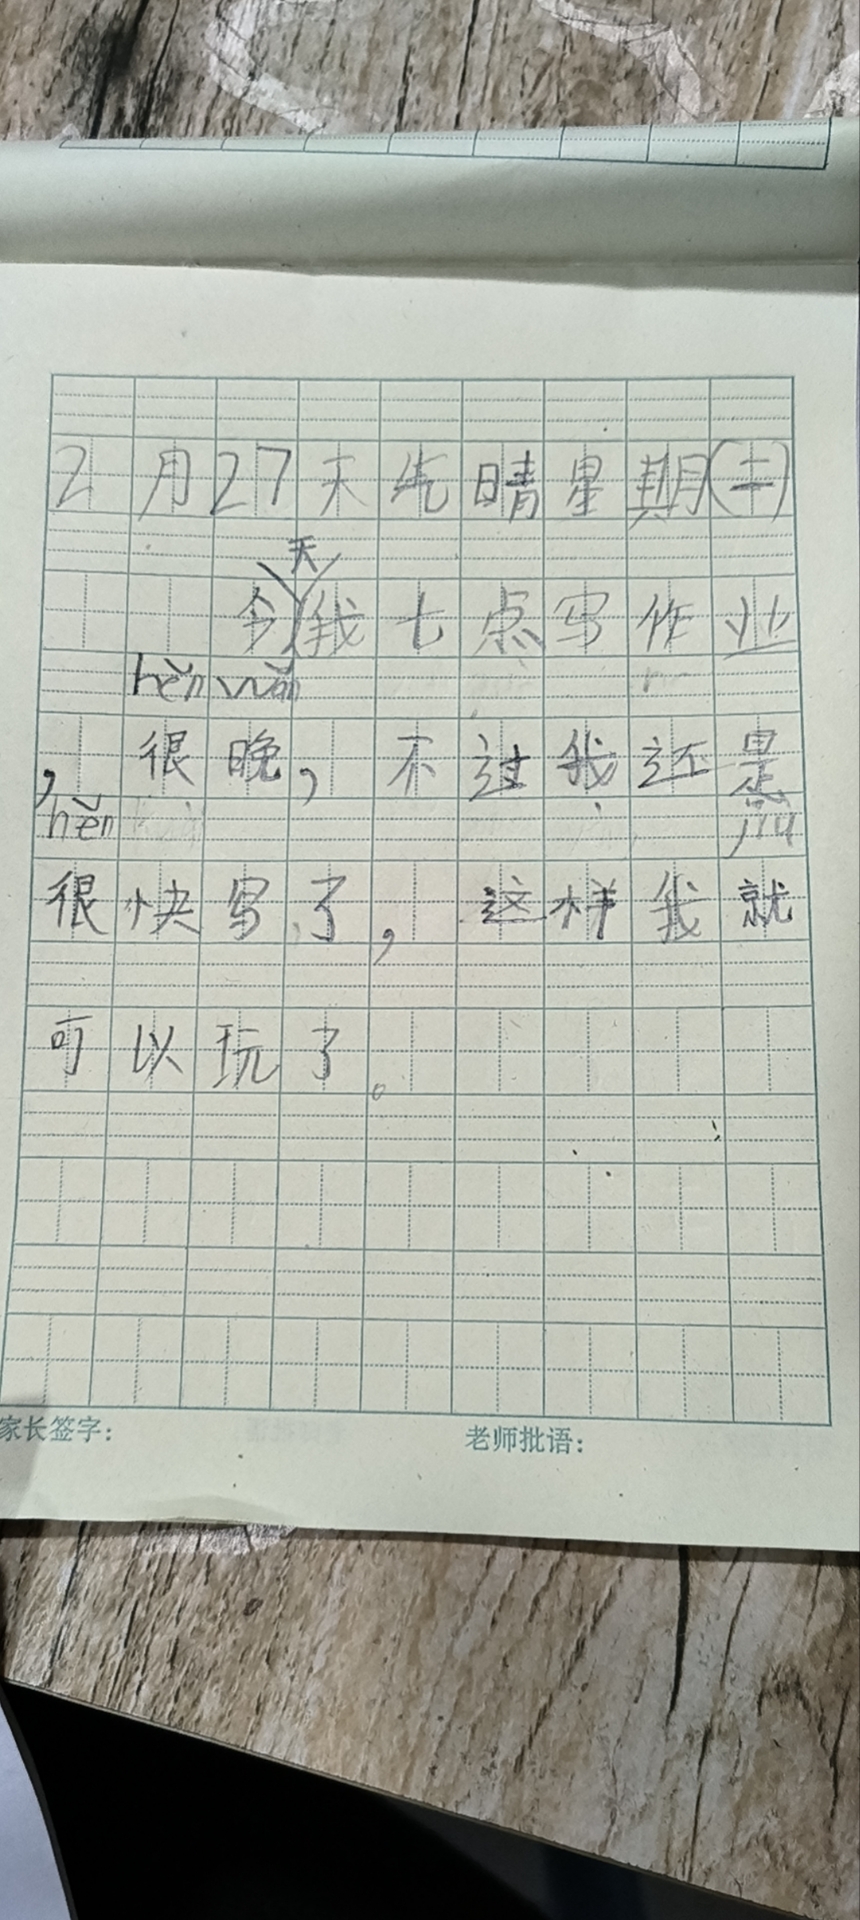 2月27天气晴星期(二)
今天我七点写作业
hěn wǎn
,很晚,不过我还是
hěn jiù
很快写了,这样我就
可以玩了。
家长签字: 老师批语: